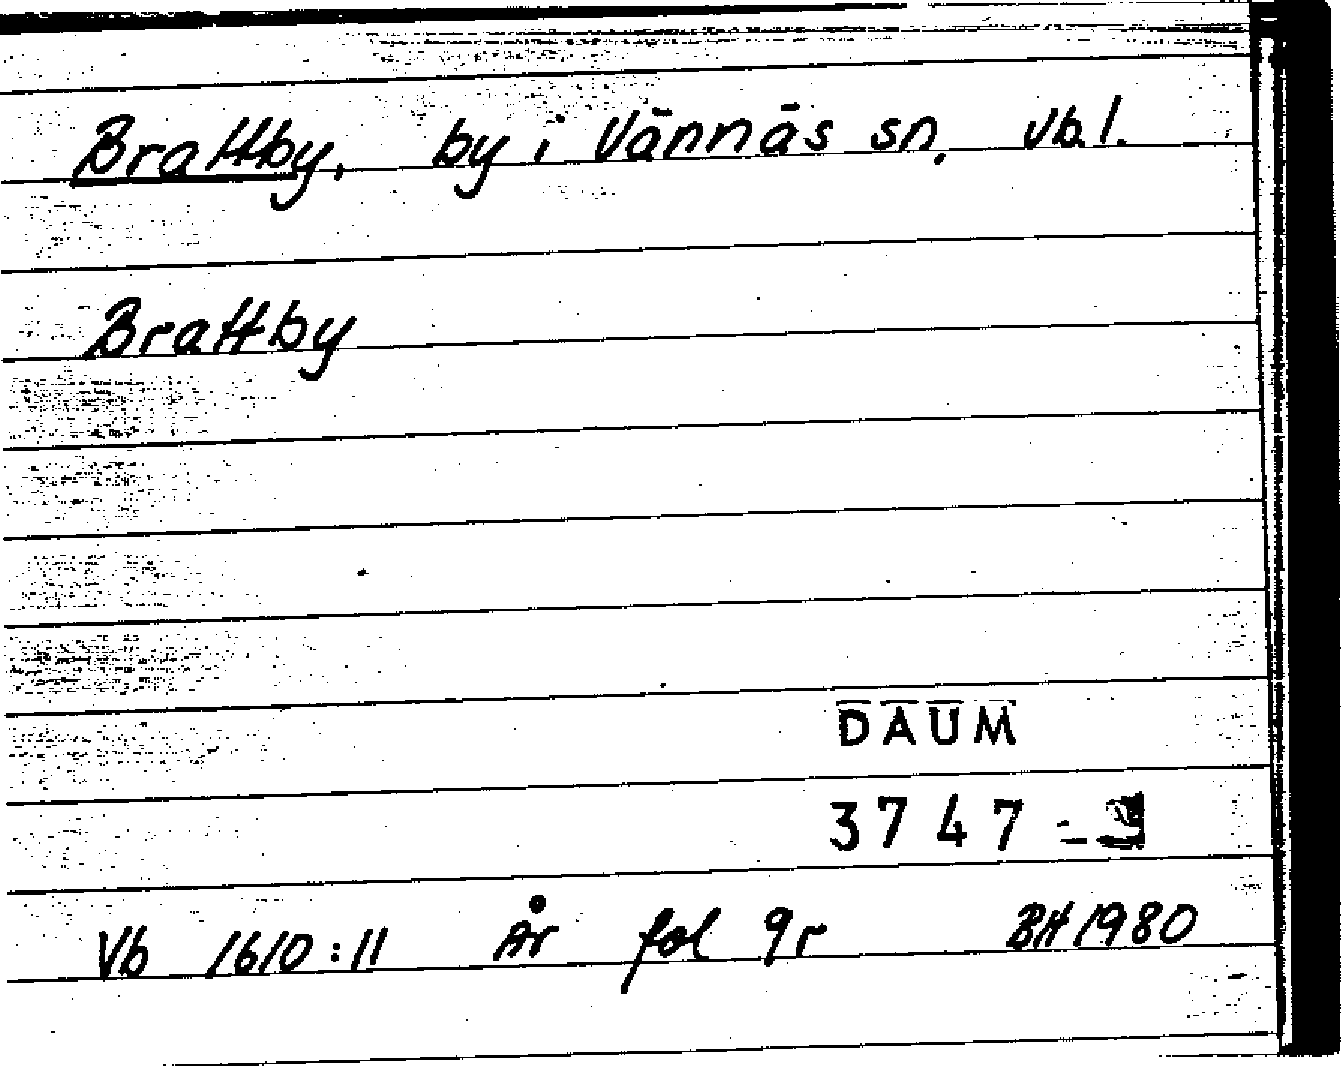 Brattby, by i Vännäs sn. Vb. l.
Brattby
DAUM
3747
Vb 1610:11 År fol 9r BH 1980